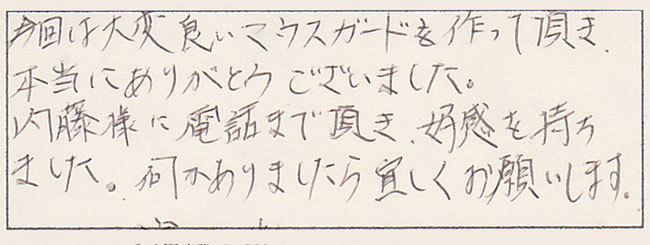 今回は大変良いマウスガードを作って頂き、
本当にありがとうございました。
内藤様に電話まで頂き、好感を持ち
ました。何かありましたら宜しくお願いします。